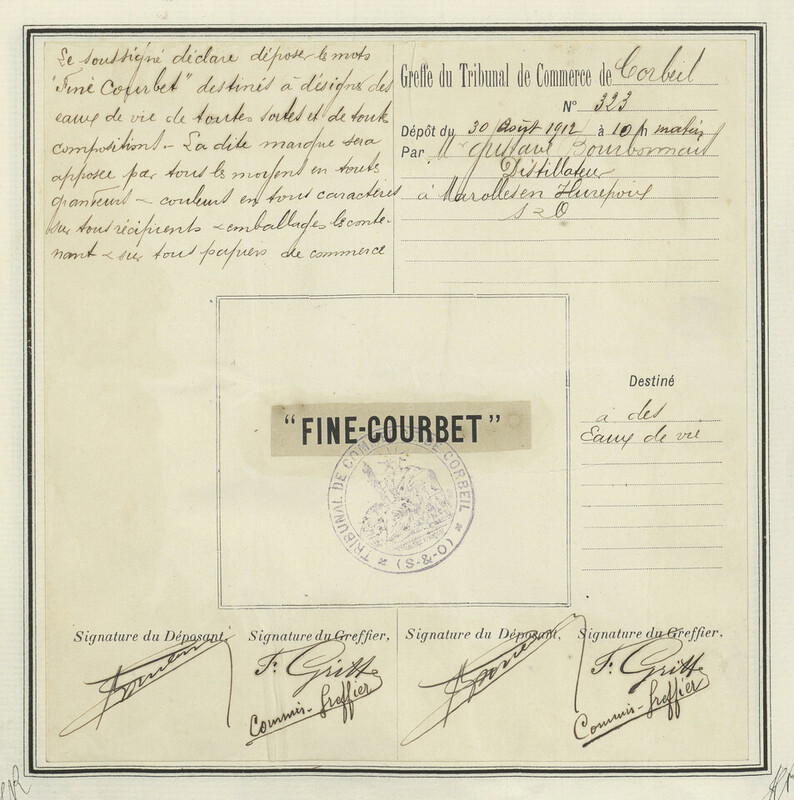 Le soussigné déclare déposer le mots
"Fine Courbet" destinés à désigner des
eaux de vie de toutes sortes et de toute
composition. - La dite marque sera
apposée par tous les moyens en toutes
grandeurs - couleurs en tous caractères
sur tous récipients & emballages le conte-
nant & sur tous papiers de commerce
Greffe du Tribunal de Commerce de Corbeil
N° 323
Dépôt du 30 Août 1912 à 10 h matin
Par Mr Gustave Bourbonnais
Distillateur
à Marolles en Hurepoix
S & O
Destiné
à des
Eaux de vie
"FINE-COURBET"
TRIBUNAL DE COMMERCE DE CORBEIL * (O-&-S) *
Signature du Déposant,
Signature du Greffier,
F. Gritte
Commis-Greffier
Signature du Déposant,
Signature du Greffier,
F. Gritte
Commis-Greffier